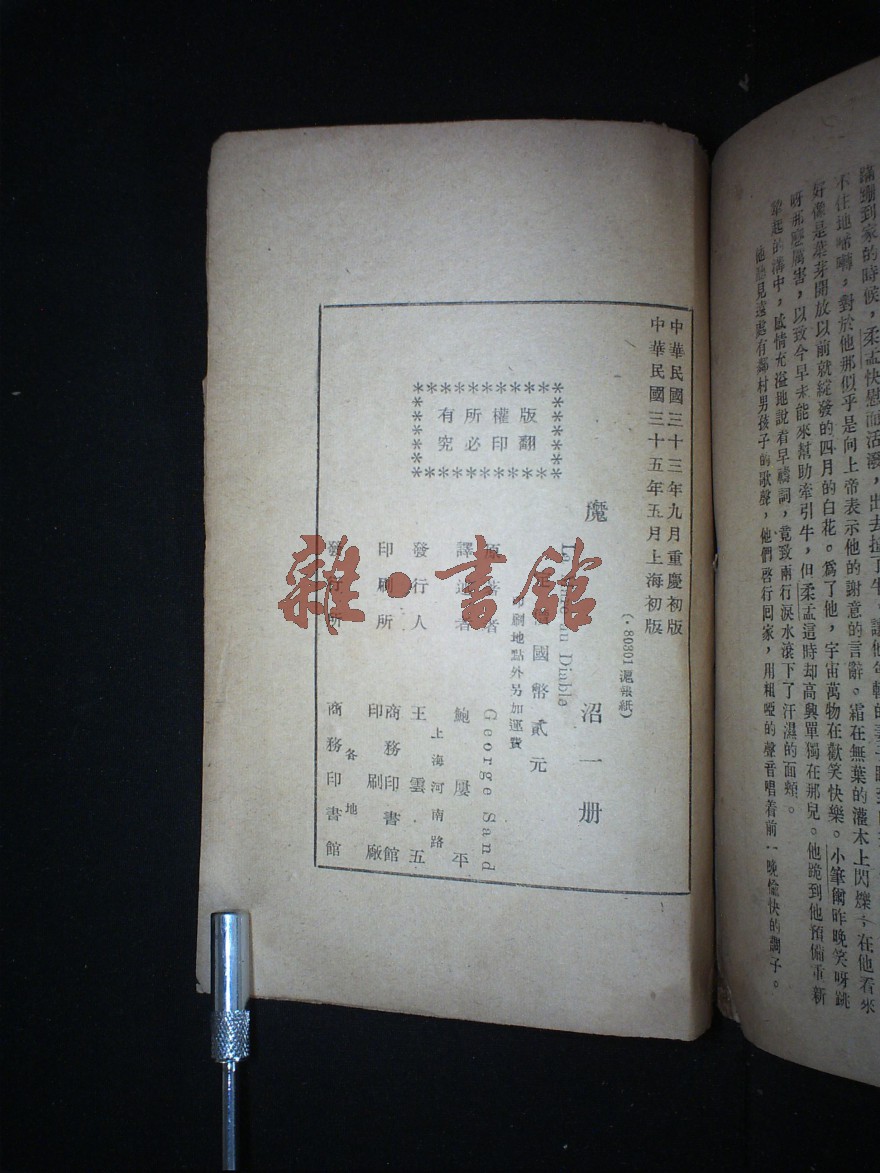 蹣跚到家的時候，柔孟快慰而活潑，出去
不住地啼囀，對於他那似乎是向上帝表示他的謝意的言辭。霜在無葉的灌木上閃爍；在他看來
好像是葉芽開放以前就綻發的四月的白花。爲了他，宇宙萬物在歡笑快樂。小筆爾昨晚笑呀跳
呀那麼厲害，以致今早未能來幫助牽引牛，但柔孟這時却高興單獨在那兒。他跪到他預備重新
的溝中，感情充溢地說着早禱詞，竟致兩行淚水滾下了汗濕的面頰。
他聽見遠處有鄰村男孩子的歌聲，他們啓行回家，用粗啞的聲音唱着前一晚愉快的調子。
中華民國三十三年九月重慶初版
中華民國三十五年五月上海初版
(·80301 滬報紙)
魔沼一册
Diable
國幣貳元
印刷地點外另加運費
版權所有
翻印必究
原著者 George Sand
譯述者 鮑屢平
發行人 王雲五
上海河南路
印刷所 商務印書館
印刷廠
各地
發行所 商務印書館
雜·書館